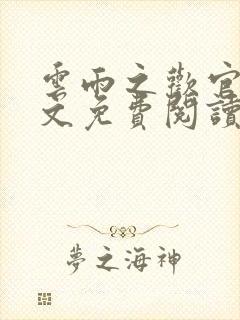 雲雨之歡官
文免費閱讀
夢之海神